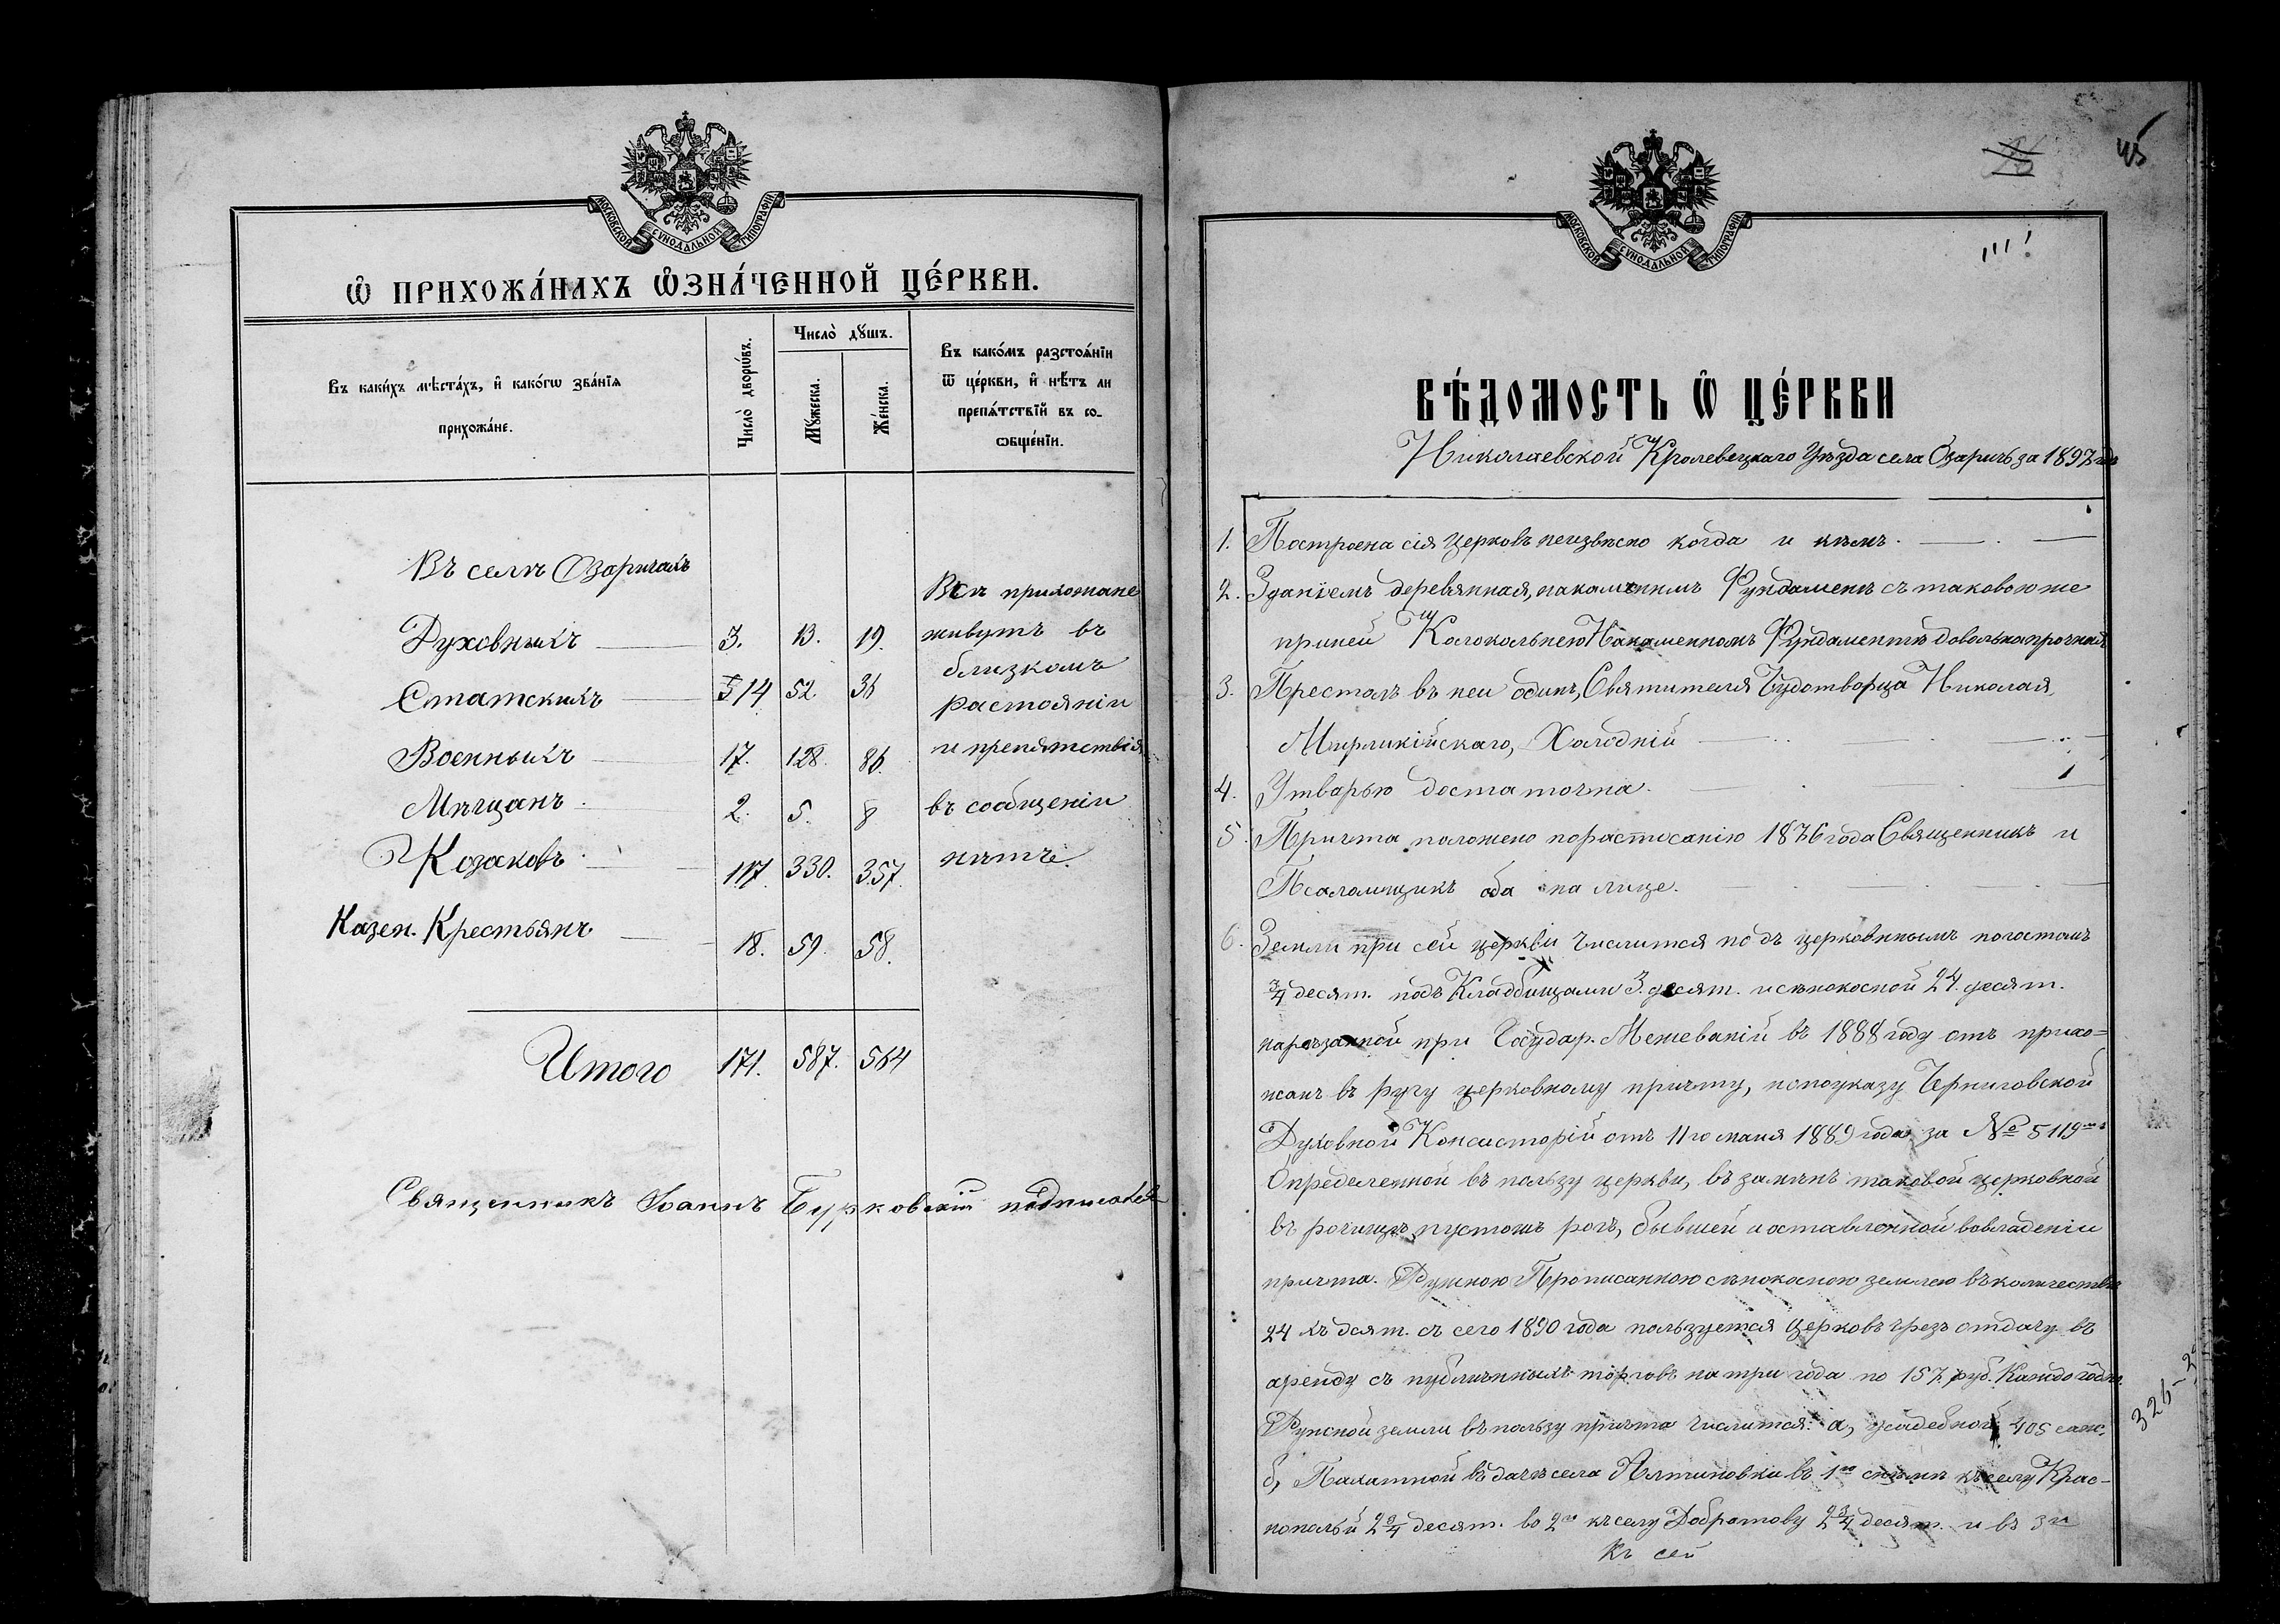 МОСКОВСКОЙ СѴНОДАЛЬНОЙ ТИПОГРАФІИ
Ѡ ПРИХОЖА́НАХЪ ѠЗНА́ЧЕННОЙ ЦЕ́РКВИ.
Въ каки́хъ мѣста́хъ, и҆ како́гѡ зва́нїѧ
прихожа́не.
Число̀ дворѡ́въ.
Число̀ дꙋшъ.
Мꙋ́жеска.
Же́нска.
Въ како́мъ разстоѧ́нїи
ѿ це́ркви, и҆ нѣ́тъ ли
препѧ́тствїй въ со-
ѻбще́нїи.
Въ селѣ Озаричахъ
Духовныхъ 3. 13. 19.
Статскихъ 14 52. 36
Военныхъ 17. 128. 86.
Мѣщанъ 2. 5. 8
Козаковъ 117. 330. 357.
Казен. Крестьянъ 18. 59. 58.
Итого 171. 587. 564
Всѣ прихожане
живутъ въ
близкомъ
растояніи
и препятствія
въ сообщеніи
нѣтъ.
Священникъ Іоаннъ Бурковскій подписался
45
МОСКОВСКОЙ СѴНОДАЛЬНОЙ ТИПОГРАФІИ
ВѢ́ДОМОСТЬ Ѡ ЦЕ́РКВИ
Николаевской Кролевецкаго Уѣзда села Озаричъ за 1892 годъ
1. Построена сія церковъ неизвѣсно когда и кѣмъ.
2. Зданіемъ деревянная, накаменнмъ Фундаменѣ съ таковою же
приней Колокольнею Накаменномъ Фундаментѣ довольно прочная
3. Престолъ въ неи одинъ, Святителя Чудотворца Николая,
Мирликійскаго, Холодній
4. Утварью достаточна.
5. Причта положено порасписанію 1876 года Священникъ и
Псаломщикъ оба на лице.
6. Земли при сей церкви числится подъ церковнымъ погостомъ
3/4 десят. подъ Кладбищами 3. десят. и сѣнокосной 24. десят.
нарѣзанной при Государ. Межеваніи въ 1888 году отъ прихо=
жанъ въ ругу церковному причту, но по указу Черниговской
Духовной Консисторій отъ 11го маия 1889 года за № 5119мъ
Определенной въ пользу церкви, въ замѣнъ таковой церковной
въ рочищѣ пустошъ рогъ, бывшей и оставленной вовладеніи
причта. Ружною Прописанною сѣнокосною землею въ количествѣ
24 хъ дсят. съ сего 1890 года пользуется Церковъ чрезъ отдачу въ
аренду съ публичнныхъ торговъ на три года по 157 руб. Каждогодно.
Ружной земли въ пользу причта числится: а, усадебной 405 саж.
б, Пахатной въ дачѣ села Алтиновки въ 1ю смѣнѣ къ селу Крас-
нополью 2 3/4 десят. во 2ю къ селу Добротову 2 3/4 десят. и въ 3и
Къ сей